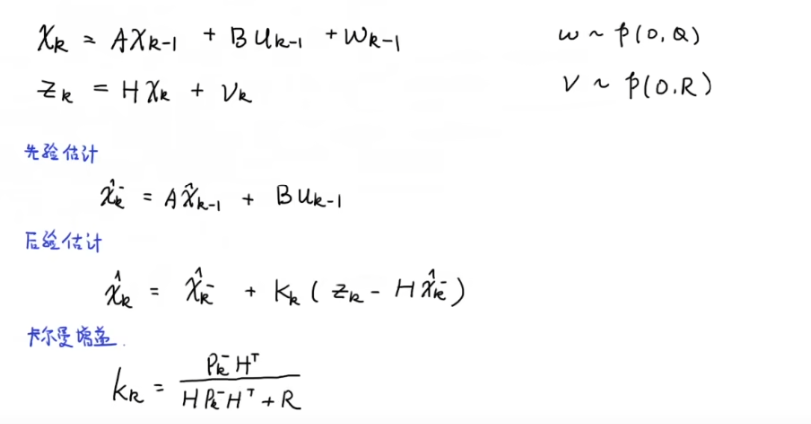 X_k = AX_{k-1} + BU_{k-1} + W_{k-1}    w ~ p(0, Q)
Z_k = HX_k + V_k    V ~ p(0.R)
先验估计
x̂_k^- = Ax̂_{k-1} + BU_{k-1}
后验估计
x̂_k = x̂_k^- + K_k ( Z_k - Hx̂_k^- )
卡尔曼增益.
K_k = \frac{P_k^- H^T}{H P_k^- H^T + R}